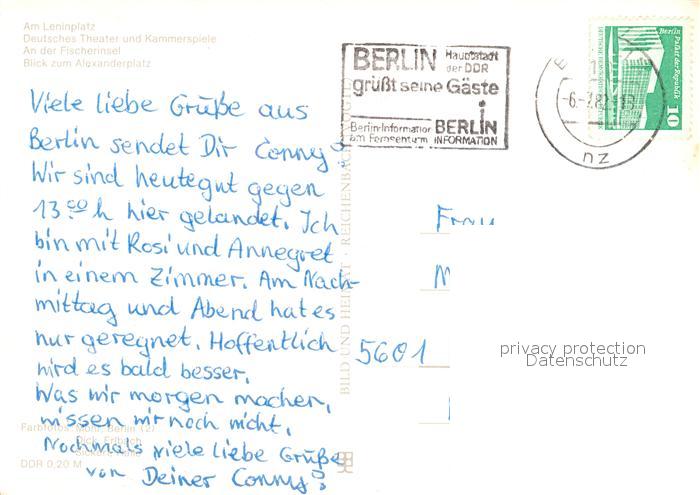 Am Leninplatz
Deutsches Theater und Kammerspiele
An der Fischerinsel
Blick zum Alexanderplatz
BERLIN Hauptstadt
der DDR
grüßt seine Gäste
Berlin-Information BERLIN
am Fernsehturm INFORMATION
Berlin Palast der Republik
10
-6.-7.82
nz
Viele liebe Grüße aus
Berlin sendet Dir Conny!
Wir sind heute gut gegen
13 00 h hier gelandet. Ich
bin mit Rosi und Annegret
in einem Zimmer. Am Nach-
mittag und Abend hat es
nur geregnet. Hoffentlich
wird es bald besser.
Was wir morgen machen,
wissen wir noch nicht.
Nochmals viele liebe Grüße
von Deiner Conny!
Farbfotos: Berlin (2)
DDR 0,20 M
BILD UND HEIMAT · REICHENBACH
Frau
5601
privacy protection
Datenschutz